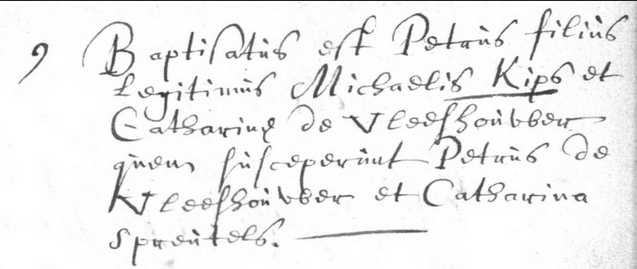 9 Baptisatus est Petrus filius
legitimus Michaelis Kips et
Catharinę de Vleeshoũvber
quem susceperunt Petrus de
Vleeshoũvber et Catharina
Spreutels.